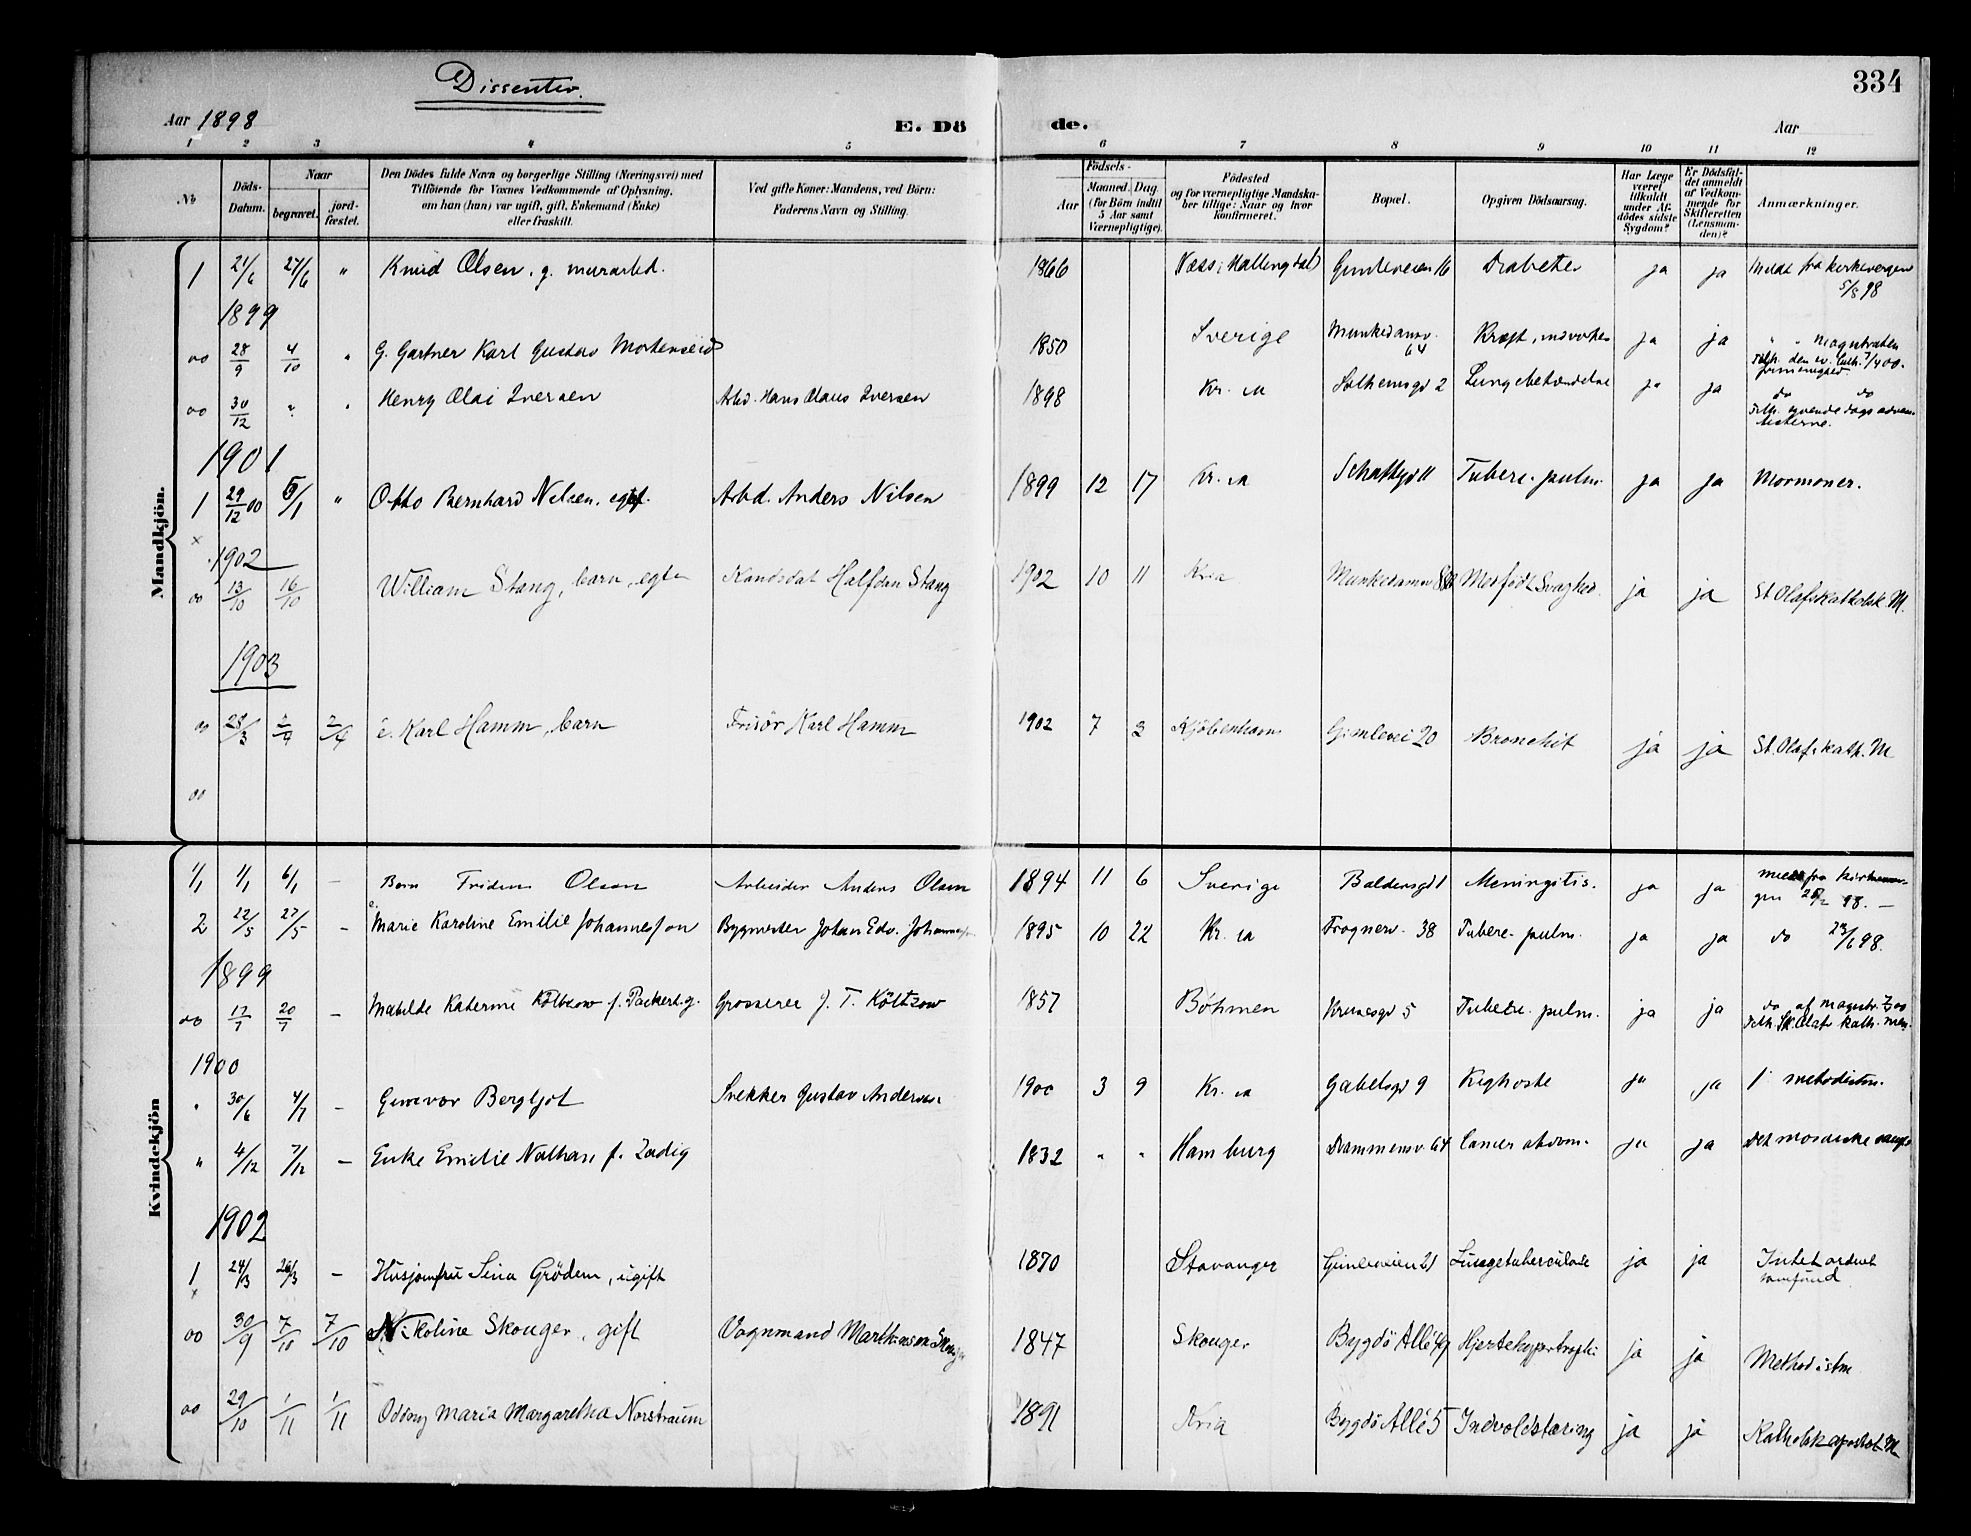 Dissenter.
334
Aar 1898
E. Dö
de.
Aar
1 2 3 4 5 6 7 8 9 10 11 12
No
Döds-Datum.
Naar
begravet.
jordfæstet.
Den Dödes fulde Navn og borgerlige Stilling (Næringsvei) med
Tilföiende for Voxnes Vedkommende af Oplysning,
om han (hun) var ugift, gift, Enkemand (Enke)
eller fraskilt.
Ved gifte Koner: Mandens, ved Börn:
Faderens Navn og Stilling.
Födsels-
Aar
Maaned. Dag.
(for Börn indtil
5 Aar samt
Værnepligtige).
Födested
og for værnepligtige Mandska-
ber tillige: Naar og hvor
konfirmeret.
Bopæl.
Opgiven Dödsaarsag.
Har Læge
været
tilkaldt
under Af-
dödes sidste
Sygdom?
Er Dödsfal-
det anmeldt
af Vedkom-
mende for
Skifteretten
(Lensman-
den)?
Anmærkninger.
Mandkjön.
1 21/6 27/6 " Knud Olsen, g. murarbd. 1866 Næss i Hallingdal Gimleveien 16 Diabetes ja ja Meldt fra kirkevergen
5/8 98
1899
00 28/9 4/10 " G. Gartner Karl Gustav 1850 Sverige Munkedamsv. 64 Kræft ja ja " " Magistraten
00 30/12 Henry Olai Iversen Arbd. Hans Olaus Iversen 1898 Kr.ia 2 Lungebetændelse ja ja do do
1901
1 29/12 00 5/1 " Otto Bernhard Nilsen, egtef. Arbd. Anders Nilsen 1899 12 17 Kr.ia 11 Tuberc. pulm. ja ja Mormoner.
x
1902
00 13/10 16/10 William Stang, barn, egte Kandidat Halfdan Stang 1902 10 11 Kria Munkedamsv Medfödt Svaghed. ja ja St Olafs katholsk M.
1903
00 28/3 2/4 2/4 e. Karl Hamm, barn Frisör Karl Hamm 1902 7 3 Kjöbenhavn Gimlevei 20 Bronchit ja ja St. Olafs kath. M
00
Kvindekjön
1/1 1/1 6/1 — Barn Olsen Arbeider Anders Olsen 1894 11 6 Sverige Baldersgd 1 Meningitis. ja ja
2 22/5 27/5 — Marie Karoline Emilie Johannesson Bygmester Johan Edv. 1895 10 22 Kr.ia Frognerv. 38 Tuberc. pulm. ja ja do
1899
00 17/7 20/7 — Matilde Katerine Költzow f. Packert. g. Grosserer J. T. Költzow 1857 Böhmen Krusesgd 5 Tuberc. pulm. ja ja
1900
" 30/6 4/7 — Gunvor Bergljot Snekker Gustav Andersen 1900 3 9 Kr.ia Gabelsgd 9 Kighoste ja ja
" 4/12 7/12 — Enke Emilie Nathan f. Zadig 1832 " " Hamburg Drammensv. 64 Cancer abdom. ja ja Det mosaiske
1902
1 24/3 26/3 — Husjomfru Sina Grödem, ugift 1870 Stavanger Gimleveien 21 Lungetuberculose ja ja Intet ordnet
samfund
x
00 30/9 7/10 7/10 Nikoline Skouger, gift Vognmand 1847 Skouger Bygdö Allé Hjertehypertrophi ja ja Methodistme
00 29/10 1/11 1/11 Oddny Maria Margaretha Norstraum 1891 Kria Bygdö Allé 5 Indvoldstæring ja ja Katholsk apostol M